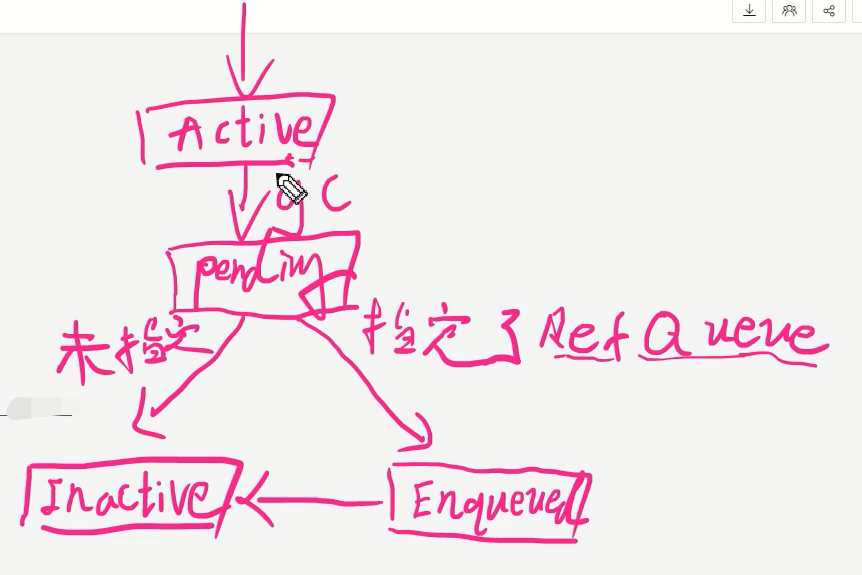 Active
gc
pending
未指定
指定了RefQueue
Inactive
Enqueued